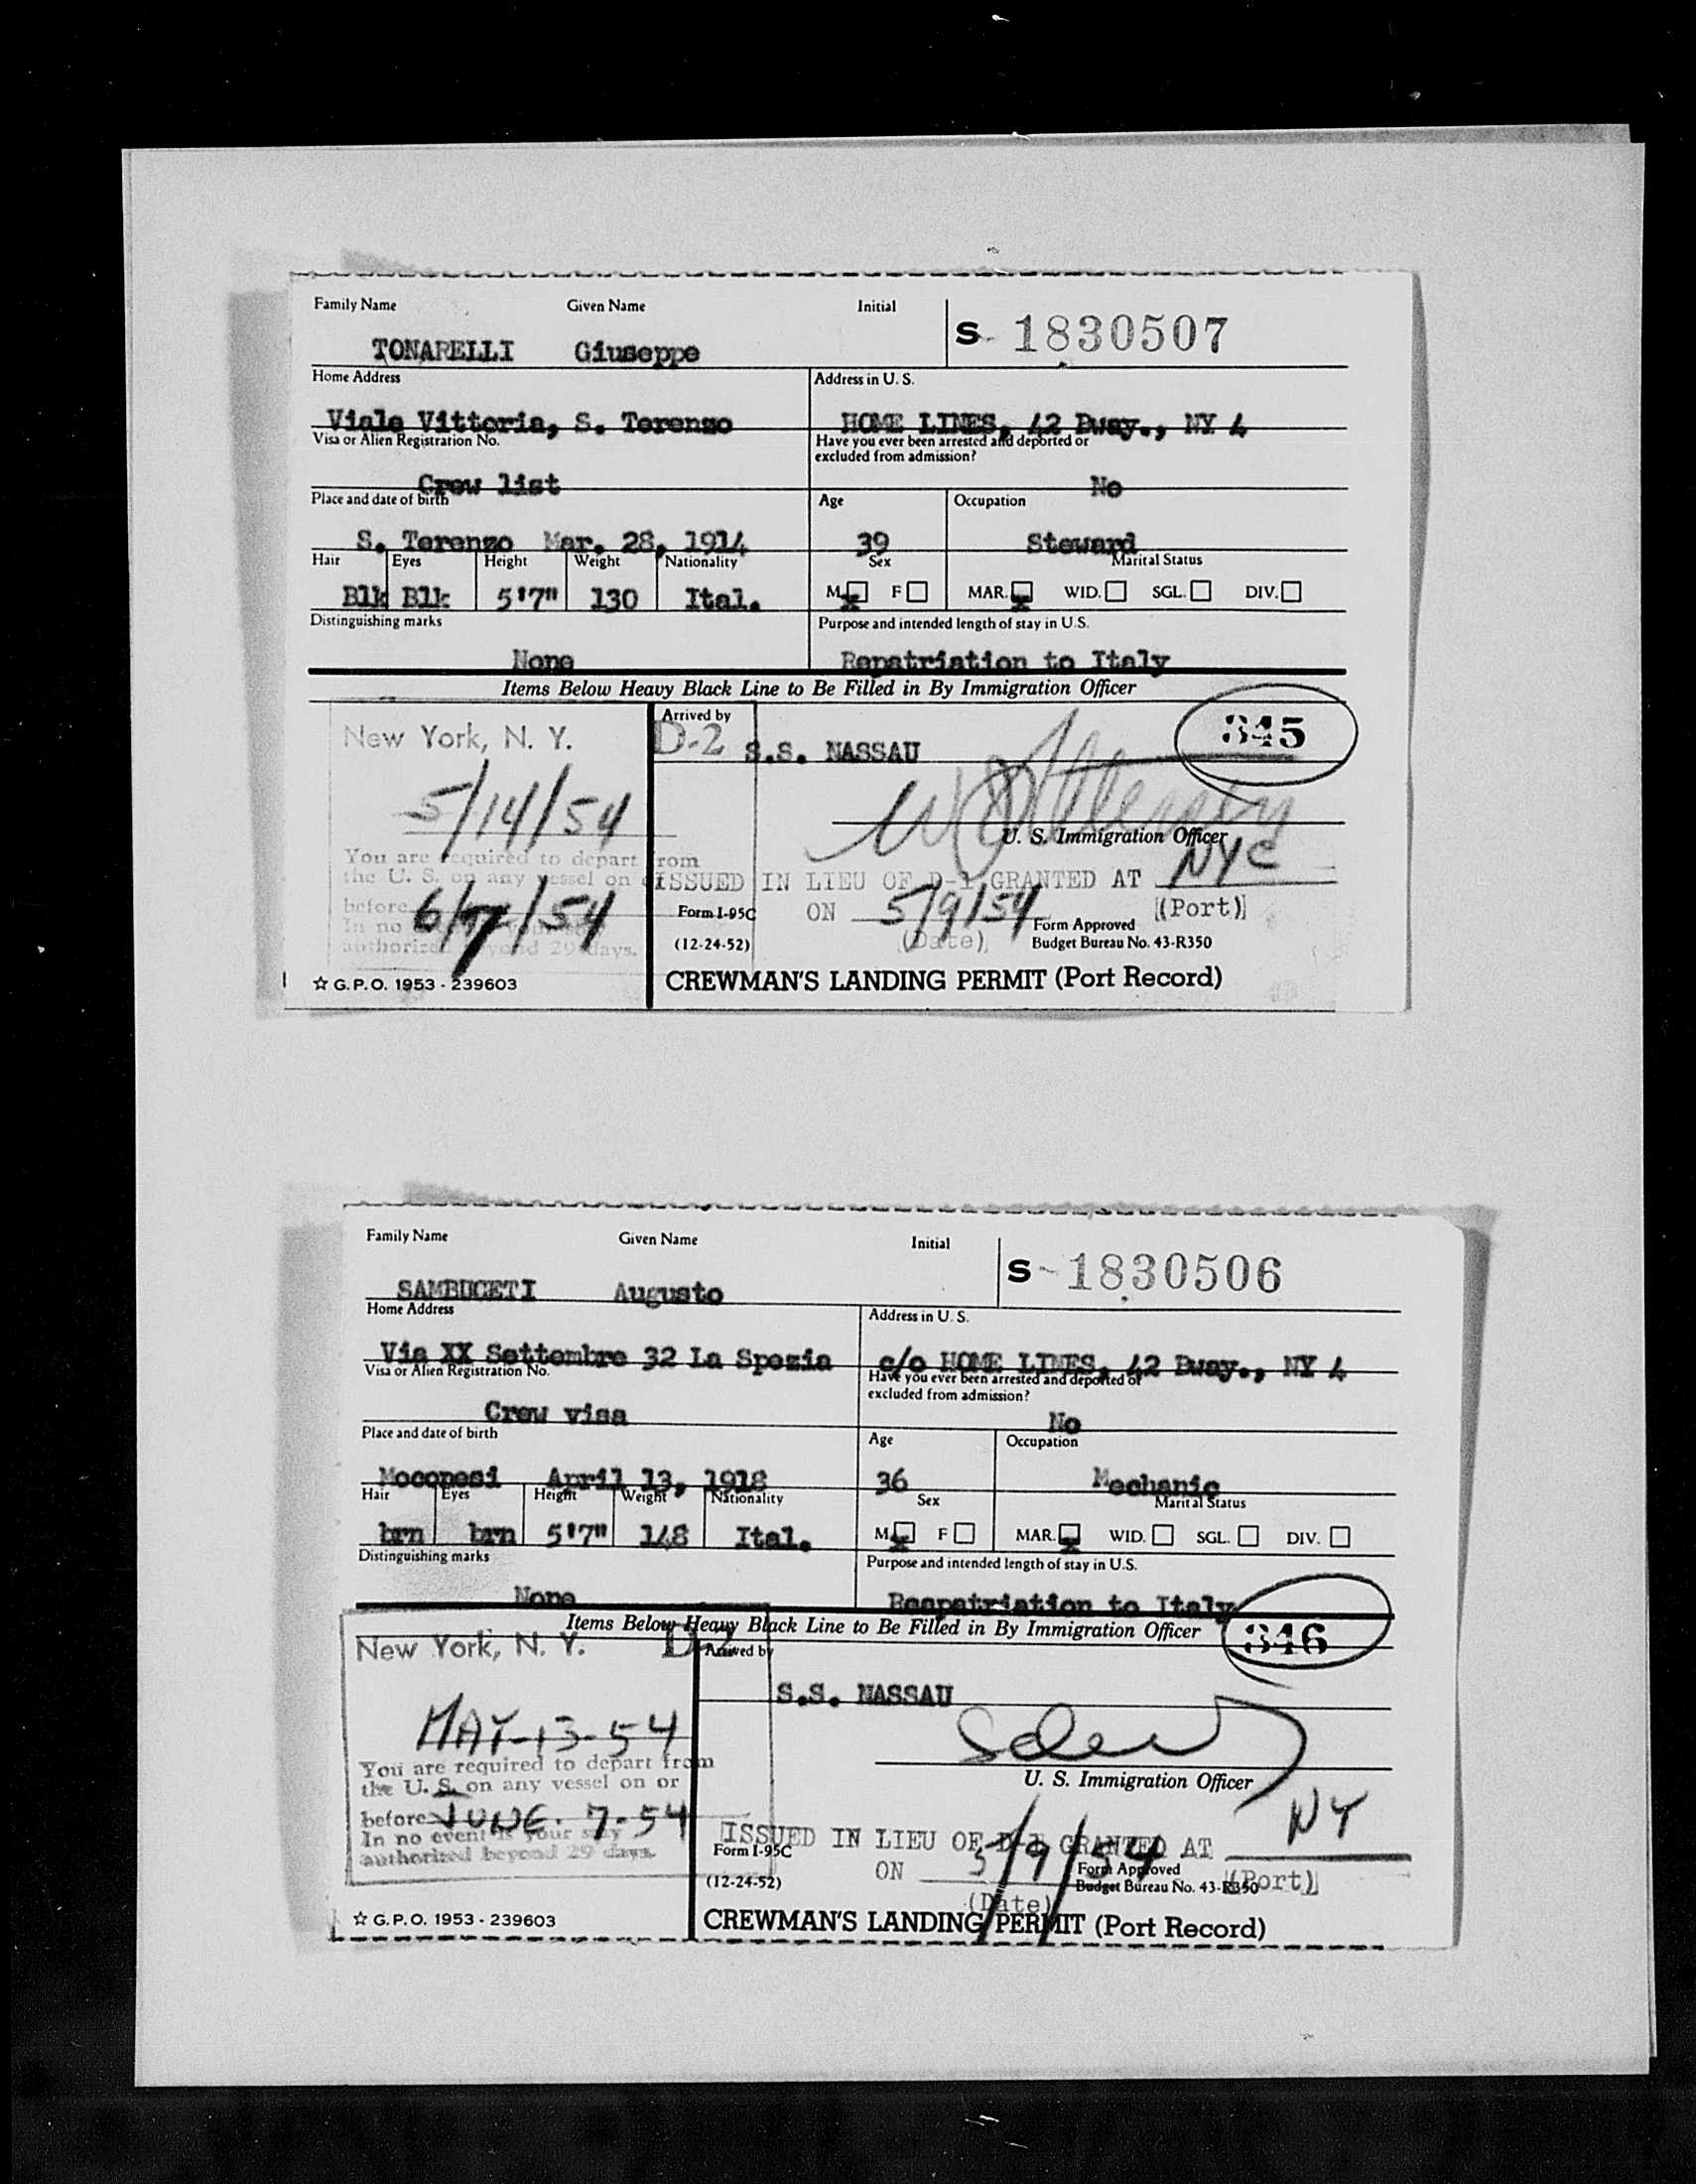 Family Name Given Name Initial
S- 1830507
TONARELLI Giuseppe
Home Address Address in U. S.
Viale Vittoria, S. Terenzo HOME LINES, 42 Bway., NY 4
Visa or Alien Registration No. Have you ever been arrested and deported or
excluded from admission?
Crew list No
Place and date of birth Age Occupation
S. Terenzo Mar. 28, 1914 39 Steward
Hair Eyes Height Weight Nationality Sex Marital Status
Blk Blk 5'7" 130 Ital. M x F MAR. x WID. SGL. DIV.
Distinguishing marks Purpose and intended length of stay in U.S.
None Repatriation to Italy
Items Below Heavy Black Line to Be Filled in By Immigration Officer
New York, N. Y. Arrived by 345
D-2 S.S. NASSAU
5/14/54
U. S. Immigration Officer
You are required to depart from
the U. S. on any vessel on or
ISSUED IN LIEU OF D-1 GRANTED AT NYC
before 6/7/54 Form I-95C ON 5/9/54 (Port)
In no
Form Approved
authorized beyond 29 days. (12-24-52) (Date) Budget Bureau No. 43-R350
☆ G.P.O. 1953 - 239603 CREWMAN'S LANDING PERMIT (Port Record)
Family Name Given Name Initial
S-1830506
SAMBUCETI Augusto
Home Address Address in U. S.
Via XX Settembre 32 La Spezia c/o HOME LINES, 42 Bway., NY 4
Visa or Alien Registration No. Have you ever been arrested and deported or
excluded from admission?
Crew visa No
Place and date of birth Age Occupation
Moconesi April 13, 1918 36 Mechanic
Hair Eyes Height Weight Nationality Sex Marital Status
brn brn 5'7" 148 Ital. M x F MAR. x WID. SGL. DIV.
Distinguishing marks Purpose and intended length of stay in U.S.
None Reapatriation to Italy
Items Below Heavy Black Line to Be Filled in By Immigration Officer 346
New York, N. Y. D-2 Arrived by
S.S. NASSAU
MAY-13-54
You are required to depart from
the U. S. on any vessel on or U. S. Immigration Officer
before JUNE. 7-54 NY
In no event is your stay ISSUED IN LIEU OF D-1 GRANTED AT
authorized beyond 29 days. Form I-95C ON 5/9/54 Form Approved (Port)
(12-24-52) Budget Bureau No. 43-R350
(Date)
☆ G.P.O. 1953 - 239603 CREWMAN'S LANDING PERMIT (Port Record)